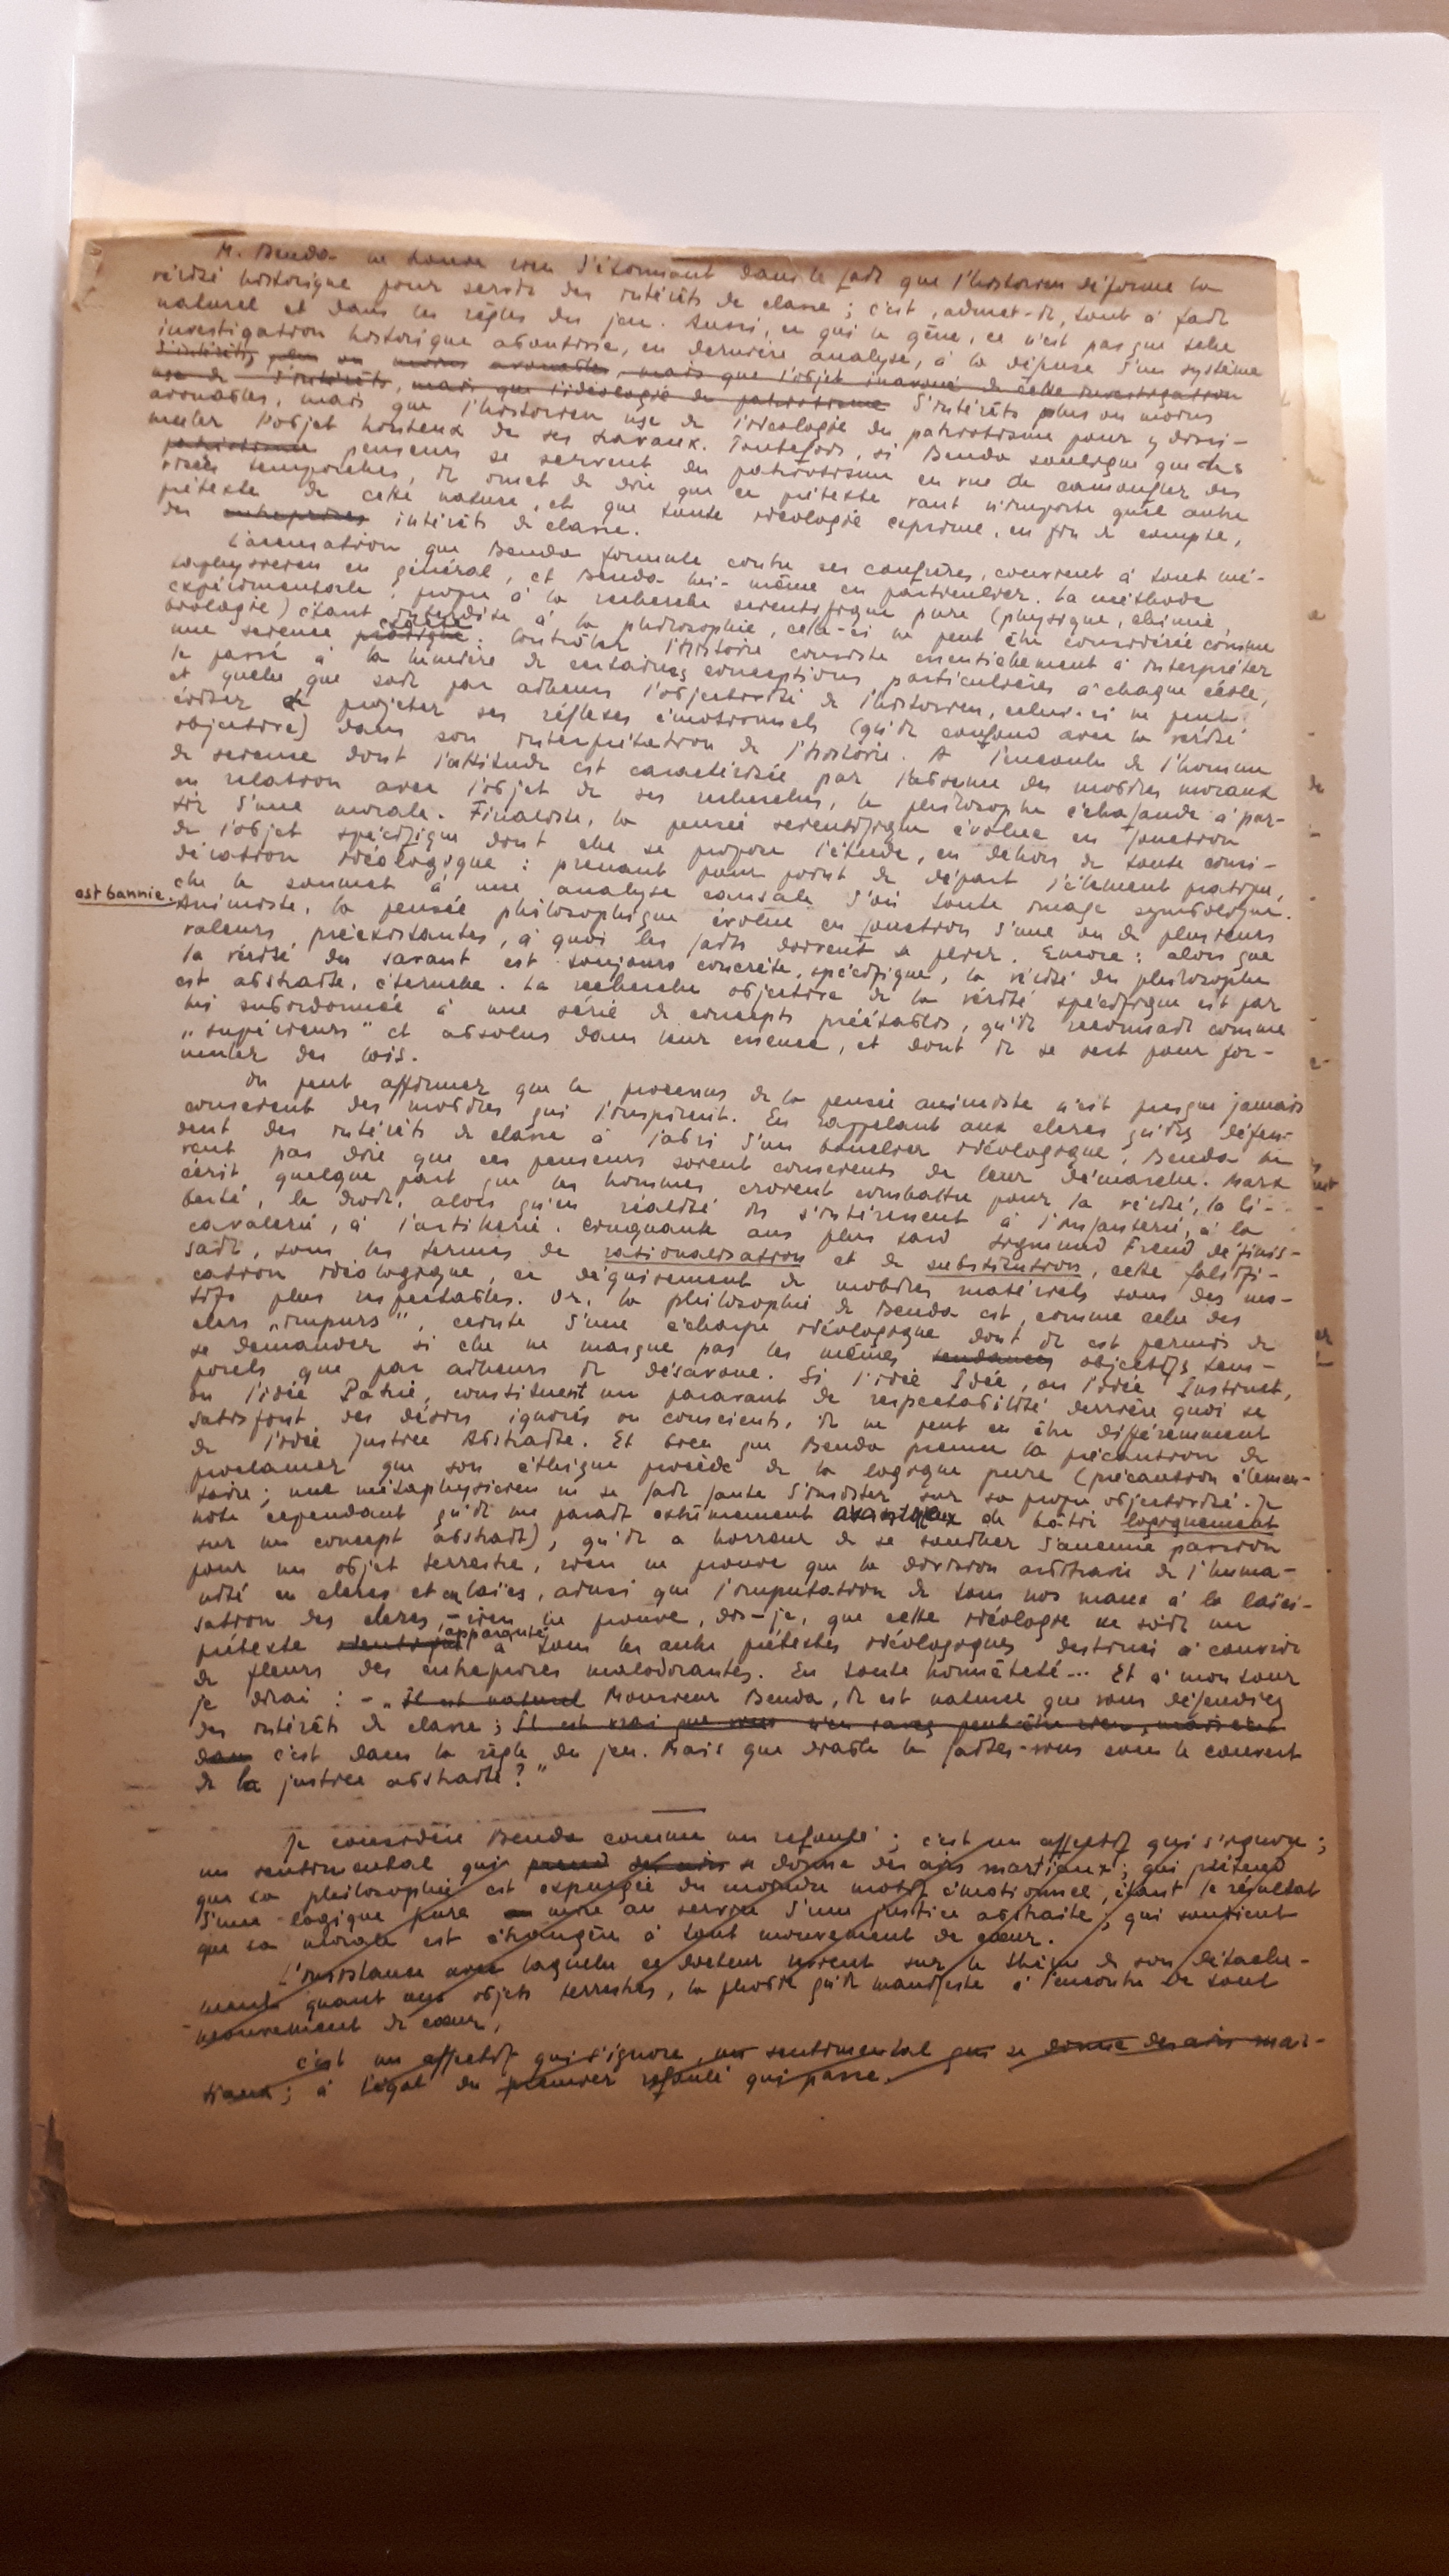 M. Benda ne trouve rien d'étonnant dans le fait que l'historien déforme la
vérité historique pour servir des intérêts de classe ; c'est, admet-il, tout à fait
naturel et dans les règles du jeu. Aussi, ce qui le gêne, ce n'est pas que telle
investigation historique aboutisse, en dernière analyse, à la défense d'un système
d'intérêts plus ou moins avouables, mais que l'objet inavoué de cette investigation
use de d'intérêts, mais que l'idéologie du patriotisme d'intérêts plus ou moins
avouables, mais que l'historien use de l'idéologie du patriotisme pour y dissi-
muler l'objet honteux de ses travaux. Toutefois, si Benda souligne que des
patriotisme penseurs se servent du patriotisme en vue de camoufler des
visées temporelles, il omet de dire que ce prétexte vaut n'importe quel autre
prétexte de cette nature, et que toute idéologie exprime, en fin de compte,
des entreprises intérêts de classe.
L'accusation que Benda formule contre ses confrères, convient à tout mé-
taphysicien en général, et Benda lui-même en particulier. La méthode
expérimentale, propre à la recherche scientifique pure (physique, chimie,
biologie) étant interdite à la philosophie, celle-ci ne peut être considérée comme
une science exacte. Contrôler l'histoire consiste essentiellement à interpréter
le passé à la lumière de certaines conceptions particulières à chaque école,
et quelle que soit par ailleurs l'objectivité de l'historien, celui-ci ne peut
éviter de projeter ses réflexes émotionnels (qu'il confond avec la vérité
objective) dans son interprétation de l'histoire. A l'encontre de l'homme
de science dont l'attitude est caractérisée par l'absence des mobiles moraux
en relation avec l'objet de ses recherches, le philosophe échafaude à par-
tir d'une morale. Finaliste, la pensée scientifique évolue en fonction
de l'objet spécifique dont elle se propose l'étude, en dehors de toute consi-
dération idéologique : prenant pour point de départ l'élément pratique,
elle le soumet à une analyse causale d'où toute image symbolique
est bannie.
Animiste, la pensée philosophique évolue en fonction d'une ou de plusieurs
valeurs préexistantes, à quoi les faits doivent se plier. Encore : alors que
la vérité du savant est toujours concrète, spécifique, la vérité du philosophe
est abstraite, éternelle. La recherche objective de la vérité spécifique est par
lui subordonnée à une série de concepts préétablis, qu'il reconnait comme
„supérieurs" et absolus dans leur essence, et dont il se sert pour for-
muler des lois.
On peut affirmer que le processus de la pensée animiste n'est presque jamais
conscient des mobiles qui l'inspirent. En rappelant aux clercs qu'ils défen-
dent des intérêts de classe à l'abri d'un bouclier idéologique, Benda ne
veut pas dire que ces penseurs soient conscients de leur démarche. Marx
écrit quelque part que les hommes croient combattre pour la vérité, la li-
berté, le droit, alors qu'en réalité ils s'intéressent à l'infanterie, à la
cavalerie, à l'artillerie. Cinquante ans plus tard Sigmund Freud définis-
sait, sous les termes de rationalisation et de substitution, cette falsifi-
cation idéologique, ce déguisement de mobiles matériels sous des mo-
tifs plus respectables. Or, la philosophie de Benda est, comme celle des
clercs „impurs", ceinte d'une écharpe idéologique dont il est permis de
se demander si elle ne masque pas les mêmes tendances objectifs tem-
porels que par ailleurs il désavoue. Si l'idée Idée, ou l'idée Instinct,
ou l'idée Patrie, constituent un paravant de respectabilité derrière quoi se
satisfont des désirs ignorés ou conscients, il ne peut en être différemment
de l'idée Justice Abstraite. Et bien que Benda prenne la précaution de
proclamer que son éthique procède de la logique pure (précaution élémen-
taire ; nul métaphysicien ne se fait faute d'insister sur sa propre objectivité. Je
note cependant qu'il me parait extrêmement avantageux de bâtir logiquement
sur un concept abstrait), qu'il a horreur de se souiller d'aucune passion
pour un objet terrestre, rien ne prouve que la division arbitraire de l'huma-
nité en clercs et en laïcs, ainsi que l'imputation de tous nos maux à la laïci-
sation des clercs, – rien ne prouve, dis-je, que cette idéologie ne soit un
prétexte identique apparenté à tous les autre prétextes idéologiques destinés à couvrir
de fleurs des entreprises malodorantes. En toute honnêteté... Et à mon tour
je dirai : – „Il est naturel Monsieur Benda, il est naturel que vous défendiez
des intérêts de classe ; Il est vrai que vous n'en savez peut-être rien, mais c'est
dans c'est dans la règle du jeu. Mais que diable le faites-vous sous le couvert
de la justice abstraite ?"
Je considère Benda comme un refoulé ; c'est un affectif qui s'ignore ;
un sentimental qui prend des airs se donne des airs martiaux ; qui prétend
que sa philosophie est expurgée du moindre motif émotionnel, étant le résultat
d'une logique pure mise au service d'une justice abstraite ; qui soutient
que sa morale est étrangère à tout mouvement de cœur.
L'insistance avec laquelle ce docteur revient sur le thème de son détache-
ment quant aux objets terrestres, la phobie qu'il manifeste à l'encontre de tout
mouvement de cœur,
c'est un affectif qui s'ignore, un sentimental qui se donne des airs mar-
tiaux ; à l'égal du premier refoulé qui passe.